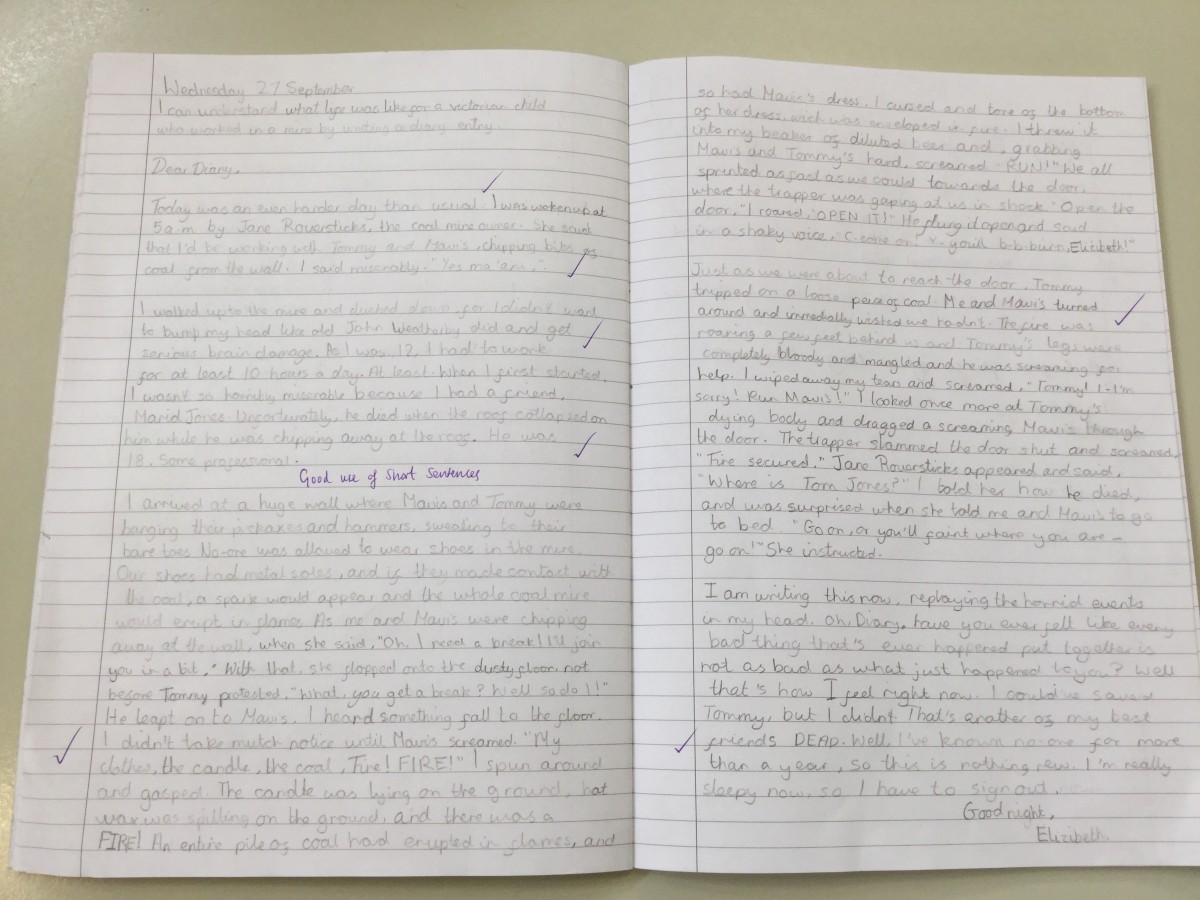 Wednesday 27 September
I can understand what life was like for a victorian child
who worked in a mine by writing a diary entry.
Dear Diary,
Today was an even harder day than usual. I was woken up at
5a.m by Jane Roversticks, the coal mine owner. She said
that I'd be working with Tommy and Mavis, chipping bits of
coal from the wall. I said miserably. "Yes ma'am,".
I walked up to the mine and ducked down, for I didn't want
to bump my head like old John Weatherby did and get
serious brain damage. As I was 12, I had to work
for at least 10 hours a day. At least. When I first started,
I wasn't so horribly miserable because I had a friend,
Jones. Unfortunately, he died when the roof collapsed on
him while he was chipping away at the roof. He was
18. Some professional.
Good use of Short Sentences
I arrived at a huge wall where Mavis and Tommy were
banging their pickaxes and hammers, sweating to their
bare toes. No-one was allowed to wear shoes in the mine.
Our shoes had metal soles, and if they made contact with
the coal, a spark would appear and the whole coal mire
would erupt in flames. As me and Mavis were chipping
away at the wall, when she said, "Oh, I need a break! I'll join
you in a bit." With that, she flopped onto the dusty floor, not
before Tommy protested, "What, you get a break? Well so do I!"
He leapt on to Mavis. I heard something fall to the floor.
I didn't take mutch notice until Mavis screamed. "My
clothes, the candle, the coal, Fire! FIRE!" I spun around
and gasped. The candle was lying on the ground, hot
wax was spilling on the ground, and there was a
FIRE! An entire pile of coal had erupted in flames, and
so had Mavis's dress. I cursed and tore of the bottom
of her dress, wich was enveloped in fire. I threw it
into my beaker of diluted beer and, grabbing
Mavis and Tommy's hand, screamed "RUN!" We all
sprinted as fast as we could towards the door,
where the trapper was gaping at us in shock "Open the
door," I roared, "OPEN IT!" He flung it open and said
in a shaky voice, "C-come on! Y-you'll b-b-burn, Elizibeth!"
Just as we were about to reach the door, Tommy
tripped on a loose piece of coal. Me and Mavis turned
around and immedially wished we hadn't. The fire was
roaring a few feet behind us and Tommy's legs were
completely bloody and mangled and he was screaming for
help. I wiped away my tear and screamed, "Tommy! I-I'm
sorry! Run Mavis!" I looked once more at Tommy's
dying body and dragged a screaming Mavis through
the door. The trapper slammed the door shut and screamed,
"Fire secured." Jane Roversticks appeared and said,
"Where is Tom Jones?" I told her how he died,
and was surprised when she told me and Mavis to go
to bed. "Go on, or you'll faint where you are -
go on!" She instructed.
I am writing this now, replaying the horrid events
in my head. Oh, Diary, have you ever felt like every
bad thing that's ever happened put together is
not as bad as what just happened to you? Well
that's how I feel right now. I could've saved
Tommy, but I didn't. That's another of my best
friends DEAD. Well, I've known no-one for more
than a year, so this is nothing new. I'm really
sleepy now, so I have to sign out,
Good night,
Elizibeth.